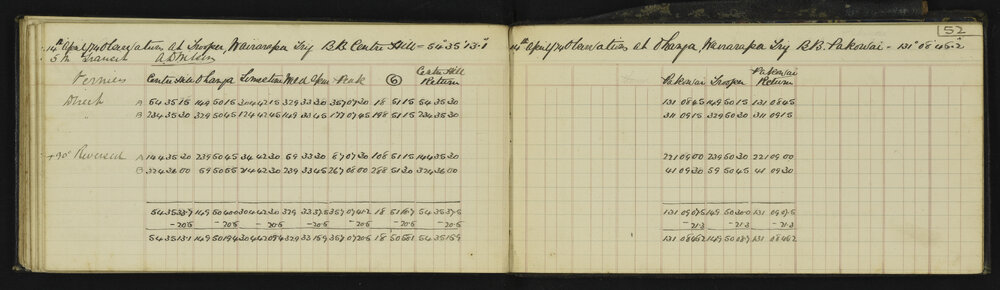 14th April/74 Observations at Trooper, Wairarapa Try B.B. Centre Hill = 54°35'13"1
5 in Transit A.D. Wilson
Vernier Centre Hill Ohanga Peak Centre Hill Return
Direct A 54 35 15 149 50 15 304 42 15 329 33 30 357 07 30 18 51 15 54 35 30
B 234 35 30 329 50 45 124 42 45 149 33 45 177 07 45 198 51 15 234 35 30
+90° Reversed A 144 35 30 239 50 45 34 42 30 59 33 30 87 07 30 108 51 15 144 35 30
B 324 36 00 59 50 55 214 42 30 239 33 45 267 08 00 288 51 30 324 36 00
54 35 33.7 149 50 40.0 304 42 30 329 33 37.5 357 07 41.2 18 51 18.7 54 35 37.5
-20.6 -20.6 -20.6 -20.6 -20.6 -20.6
54 35 13.1 149 50 19.4 304 42 09.4 329 33 15.9 357 07 20.6 18 50 58.1 54 35 15.9
152
14th April/74 Observations at Ohanga, Wairarapa Try B.B. Pakowai = 131°08'46"2
Pakowai Trooper Pakowai Return
131 08 45 149 50 15 131 08 45
311 09 15 329 50 30 311 09 15
221 09 00 239 50 30 221 09 00
41 09 30 59 50 45 41 09 30
131 09 07.5 149 50 30.0 131 09 07.5
-21.3 -21.3 -21.3
131 08 46.2 149 50 08.7 131 08 46.2